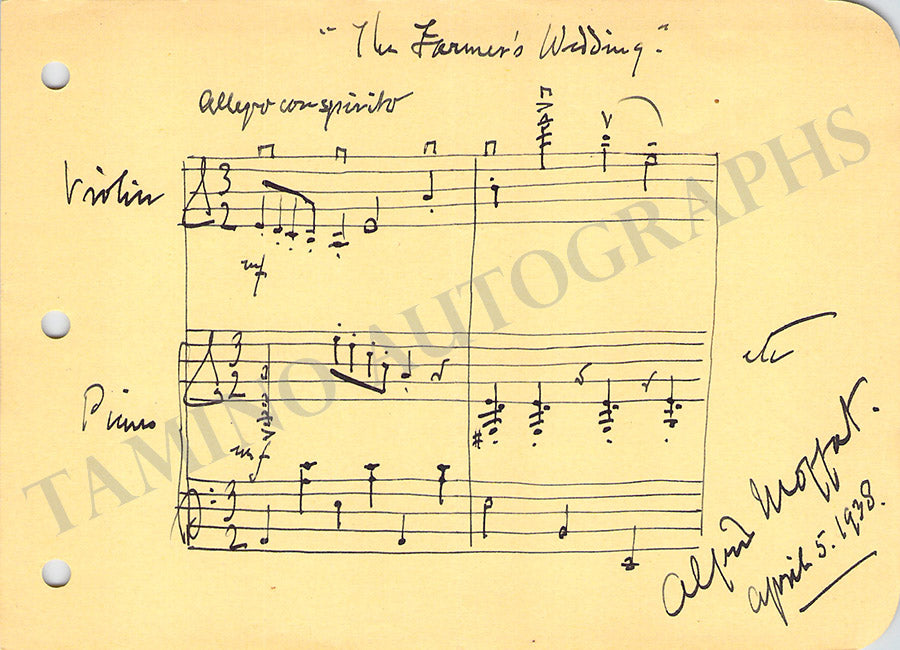 "The Farmer's Wedding."
Allegro con spirito
Violin
3
2
mf
Piano
3
2
mf
3
2
etc
Alfred Moffat.
April 5. 1938.
TAMINO AUTOGRAPHS